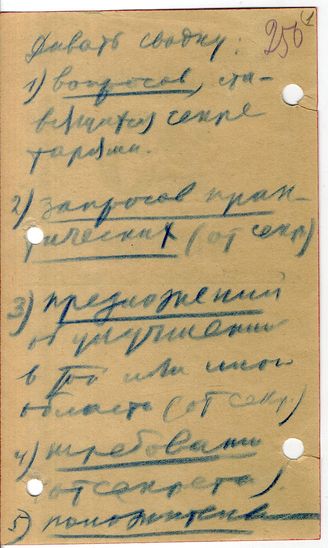 250 (1
Давать сводку:
1) вопросов, ста-
вящихся секре
тарями.
2) запросов прак-
тических (от секр)
3) предложений
об улучшении
в той или иной
области (от секр.)
4) требований
(от секрета).
5) положитель